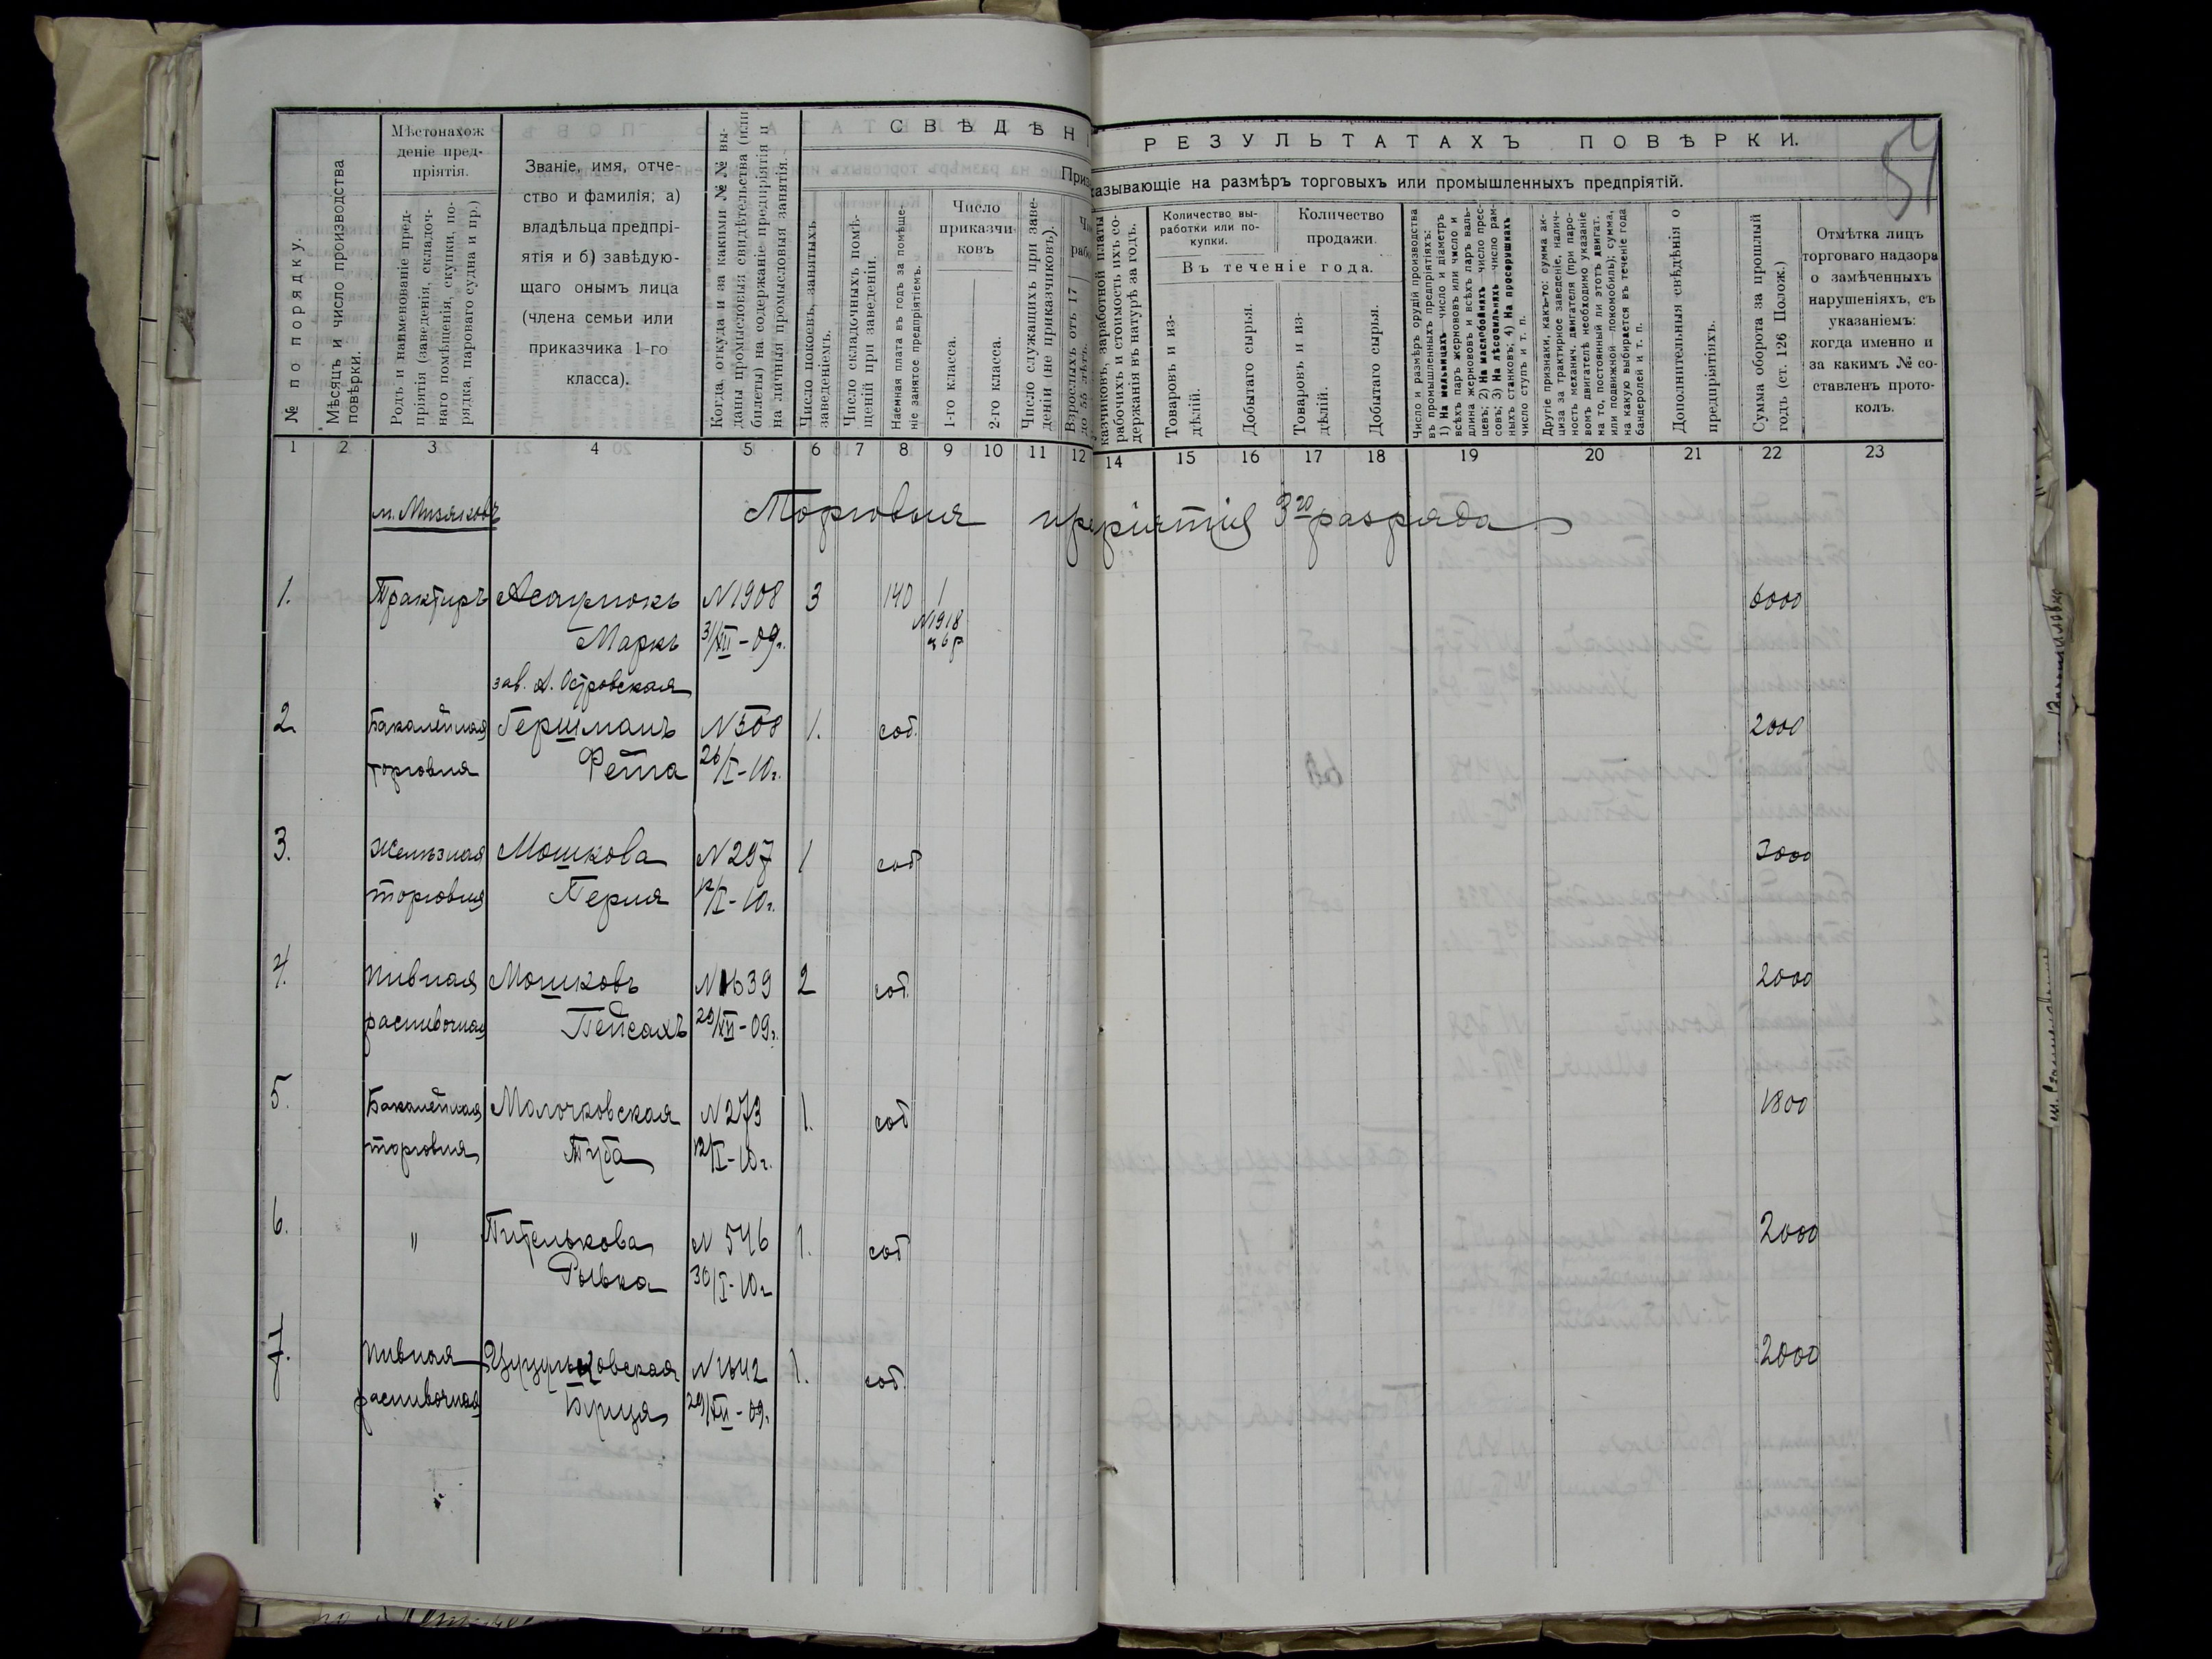 СВѢДѢН
РЕЗУЛЬТАТАХЪ ПОВѢРКИ.
54
Приз
казывающіе на размѣръ торговыхъ или промышленныхъ предпріятій.
№ по порядку.
Мѣсяцъ и число производства
повѣрки.
Мѣстонахож
деніе пред-
пріятія.
Родъ и наименованіе пред-
пріятія (заведенія, складоч-
наго помѣщенія, скупки, по-
рядка, парового судна и пр.)
Званіе, имя, отче-
ство и фамилія; а)
владѣльца предпрі-
ятія и б) завѣдую-
щаго онымъ лица
(члена семьи или
приказчика 1-го
класса).
Когда, откуда и за какими №№ вы-
даны промысловыя свидѣтельства (или
билеты) на содержаніе предпріятія и
на личныя промысловыя занятія.
Число покоевъ, занятыхъ
заведеніемъ.
Число складочныхъ помѣ-
щеній при заведеніи.
Наемная плата въ годъ за помѣще-
ніе занятое предпріятіемъ.
Число
приказчи-
ковъ
1-го класса.
2-го класса.
Число служащихъ при заве-
деніи (не приказчиковъ).
Взрослыхъ отъ 17
до 55 лѣтъ.
казчиковъ, заработной платы
рабочихъ и стоимость ихъ со-
держанія въ натурѣ за годъ.
Количество вы-
работки или по-
купки.
Количество
продажи.
Въ теченіе года.
Товаровъ и из-
дѣлій.
Добытаго сырья.
Товаровъ и из-
дѣлій.
Добытаго сырья.
Число и размѣръ орудій производства
въ промышленныхъ предпріятіяхъ:
1) На мельницахъ—число и діаметръ
всѣхъ паръ жернововъ или число и
длина жернововъ и всѣхъ паръ валь-
цевъ; 2) На маслобойняхъ—число прес-
совъ; 3) На лѣсопильняхъ—число рам-
ныхъ станковъ; 4) На просорушкахъ
число ступъ и т. п.
Другіе признаки, какъ-то: сумма ак-
циза за трактирное заведеніе, налич-
ность механич. двигателя (при паро-
вомъ двигателѣ необходимо указаніе
на то, постоянный ли этотъ двигат.
или подвижной—локомобиль); сумма,
на какую выбирается въ теченіе года
бандеролей и т. п.
Дополнительныя свѣдѣнія о
предпріятіяхъ.
Сумма оборота за прошлый
годъ (ст. 126 Полож.)
Отмѣтка лицъ
торговаго надзора
о замѣченныхъ
нарушеніяхъ, съ
указаніемъ:
когда именно и
за какимъ № со-
ставленъ прото-
колъ.
1 2 3 4 5 6 7 8 9 10 11 12 14 15 16 17 18 19 20 21 22 23
м. Мизяковъ Торговыя предпріятія 3го разряда
1. Трактиръ Асаулюкъ N1908 3 140 1 6000
Маркъ 31/XII-09г. N1918
ц 6 р
зав. А. Островская
2 Бакалейная Гершманъ N508 1. соб. 2000
торговля Фейга 26/I-10г.
3. Желѣзная Мошкова N297 1 соб 3000
торговля Перля 12/I-10г.
4. Пивная Мошковъ N1639 2 соб. 2000
распивочная Пейсахъ 29/XII-09г.
5. Бакалейная Молочковская N273 1. соб 1800
торговля Туба 12/I-10г.
6. " Пительскова N 546 1. соб 2000
Рывка 30/I-10г
7. Пивная N1642 1. соб. 2000
распивочная 29/XII-09г.